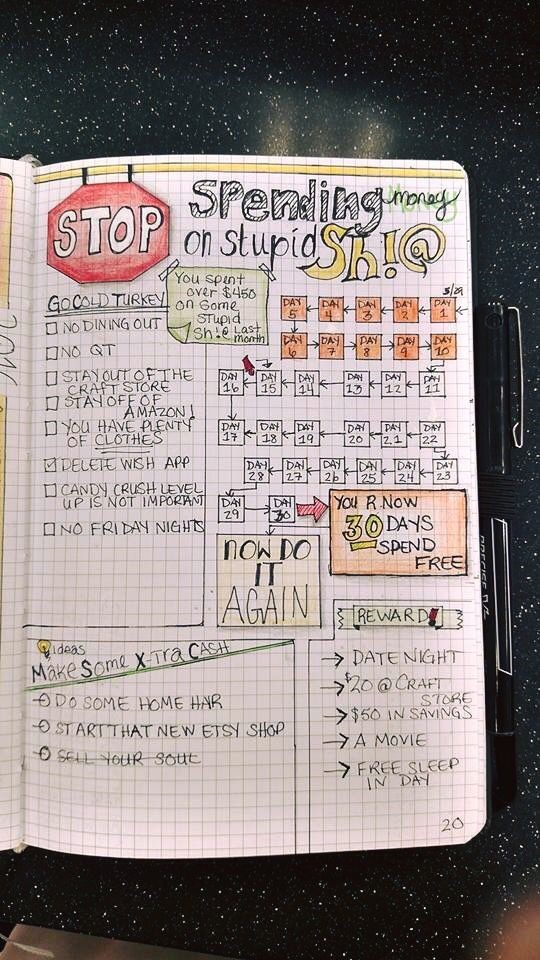 STOP
Spending money
on stupid Sh!@
You spent
over $450
on some
stupid
Sh!@ Last
month
GO COLD TURKEY
NO DINING OUT
NO QT
STAY OUT OF THE
CRAFT STORE
STAY OFF OF
AMAZON!
YOU HAVE PLENTY
OF CLOTHES
DELETE WISH APP
CANDY CRUSH LEVEL
UP IS NOT IMPORTANT
NO FRIDAY NIGHTS
3/29
DAY 5 DAY 4 DAY 3 DAY 2 DAY 1
DAY 6 DAY 7 DAY 8 DAY 9 DAY 10
DAY 16 DAY 15 DAY 14 DAY 13 DAY 12 DAY 11
DAY 17 DAY 18 DAY 19 DAY 20 DAY 21 DAY 22
DAY 28 DAY 27 DAY 26 DAY 25 DAY 24 DAY 23
DAY 29 DAY 30
YOU R NOW
30 DAYS
SPEND
FREE
NOW DO
IT
AGAIN
REWARD!
DATE NIGHT
$20 @ CRAFT
STORE
$50 IN SAVINGS
A MOVIE
FREE SLEEP
IN DAY
ideas
Make Some X-tra Cash
DO SOME HOME HAR
START THAT NEW ETSY SHOP
SELL YOUR SOUL
20